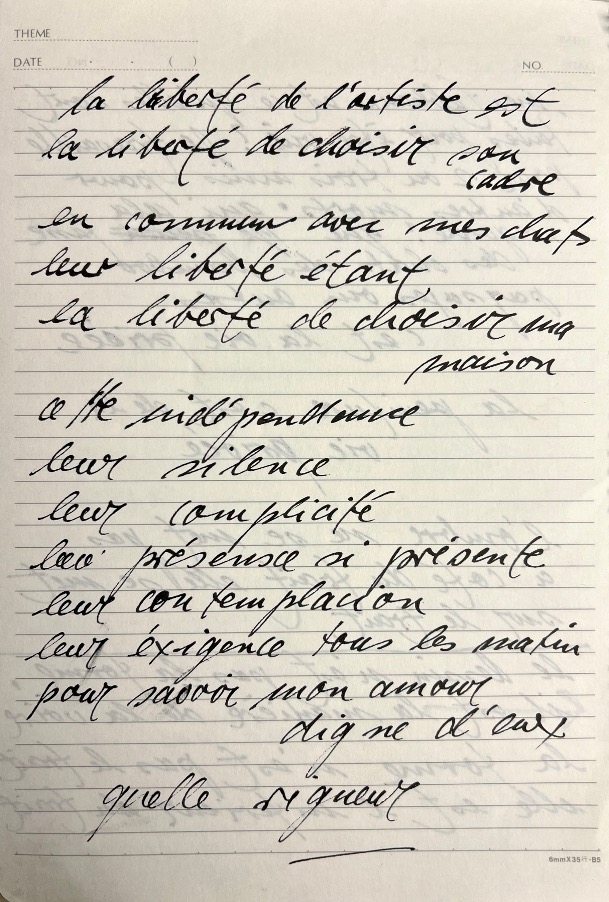 THEME
DATE . . ( )
NO.
la liberté de l'artiste est
la liberté de choisir son
cadre
en commun avec mes chats
leur liberté étant
la liberté de choisir ma
maison
cette indépendance
leur silence
leur complicité
leur présence si présente
leur contemplacion
leur éxigence tous les matin
pour savoir mon amour
digne d'eux
quelle rigueur
6mmX35行・B5